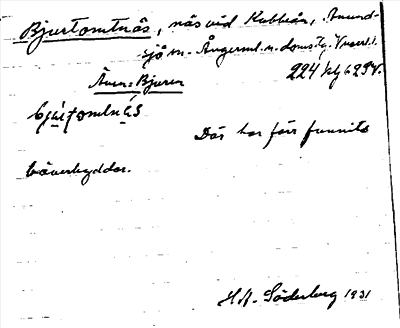 Bjurtomtnäs, näs vid Kubbeån, Anund-
sjö sn. Ångerml. n. doms.
224
Även: Bjuren
bjúrtomtnä́s
Där har förr funnits
bäverhyddor.
H.A. Söderberg 1931